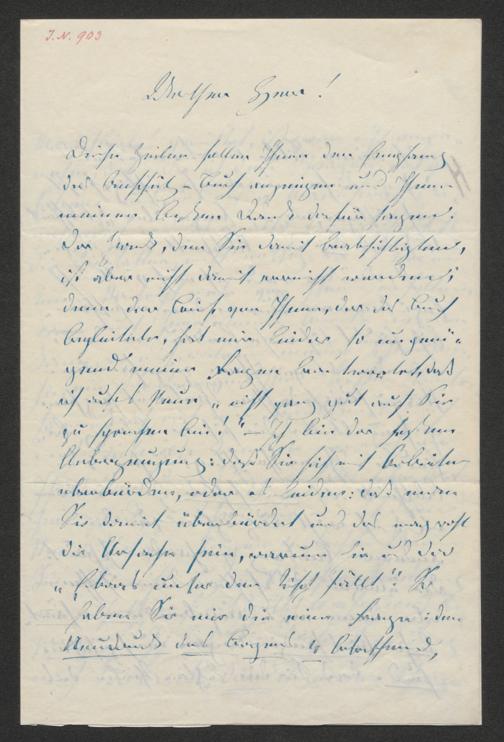 I.N. 903
Werther Herr!
Diese Zeilen sollen Ihnen den Empfang
des Buch anzeigen und Ihnen
meinen besten Dank dafür sagen.
Der Zweck, den Sie damit beabsichtigten,
ist aber nicht damit erreicht worden;
denn der Brief von Ihnen, der das Buch
begleitete, hat mir leider so ungenü-
gend meine Fragen beantwortet, daß
ich aufs Neue „nicht ganz gut auf Sie
zu sprechen bin!" – Ich bin der festen
Ueberzeugung: daß Sie sich mit Arbeiten
überbürden, oder es leiden: daß man
Sie damit überbürdet und das mag wohl
die Ursache sein, warum hie und da
„Etwas unter den Tisch fällt". So
haben Sie mir die eine Frage: den
Neudruck des Bogens betreffend,